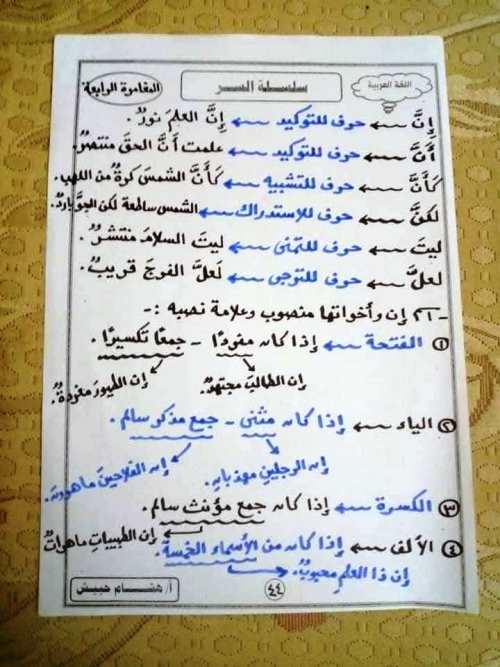 اللغة العربية
سلسلة السر
المغامرة الرابعة
إنَّ ← حرف للتوكيد ← إنَّ العلمَ نورٌ.
أنَّ ← حرف للتوكيد ← علمت أنَّ الحقَ منتصرٌ.
كأنَّ ← حرف للتشبيه ← كأنَّ الشمسَ كرةٌ من اللهب.
لكنَّ ← حرف للإستدراك ← الشمس ساطعة لكن الجوَّ باردٌ.
ليتَ ← حرف للتمنى ← ليتَ السلامَ منتشرٌ.
لعلَّ ← حرف للترجى ← لعلَّ الفرجَ قريبٌ.
-٢١ إن وأخواتها منصوب وعلامة نصبه :-
① الفتحة ← إذا كان مفردًا - جمعًا تكسيرًا.
إن الطالبَ مجتهدٌ.
إن الطيورَ مغردةٌ.
② الياء ← إذا كان مثنى - جمع مذكر سالم.
إن الرجلينِ مهذبانِ.
إن الفلاحينَ ماهرونَ.
③ الكسرة ← إذا كان جمع مؤنث سالم.
إن الطبيباتِ ماهراتٌ
④ الألف ← إذا كان من الأسماء الخمسة.
إن ذا العلمِ محبوبٌ.
٤٤
أ/ هشام حبيش